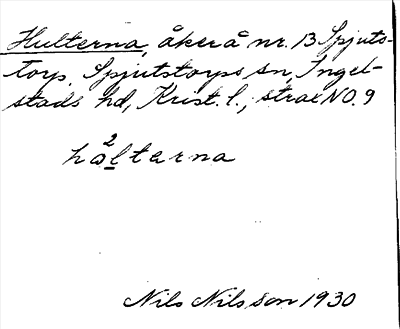 Hulterna, åker å nr. 13 Spjuts-
torp, Spjutstorps sn, Ingel-
stads hd, Krist. l., strax NO. 9
2
hålterna
Nils Nilsson 1930